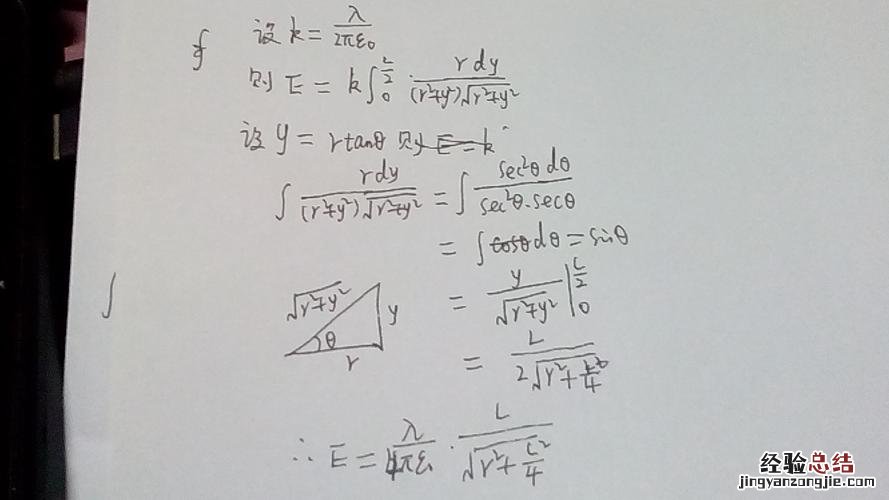 ∮ 设 k = λ/(2πε₀)
则 E = k∫₀^(L/2) · r dy/((r²+y²)√(r²+y²))
设 y = r tanθ 则 E = k
∫ r dy/((r²+y²)√(r²+y²)) = ∫ sec²θ dθ/(sec²θ·secθ)
= ∫ cosθ dθ = sinθ
∫ √(r²+y²) y θ r = y/√(r²+y²) |₀^(L/2)
= L/(2√(r²+L²/4))
∴ E = λ/(4πε₀) · L/√(r²+L²/4)
经验总结
jingyanzongjie.com